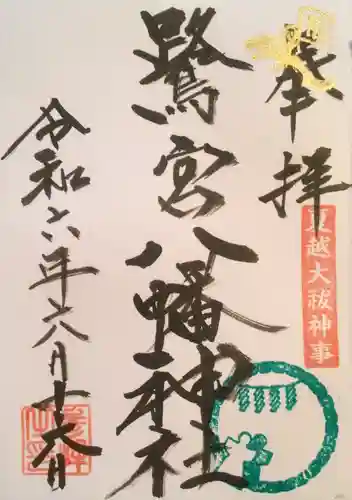 奉拝
夏越大祓神事
鷺宮八幡神社
令和六年六月十六日